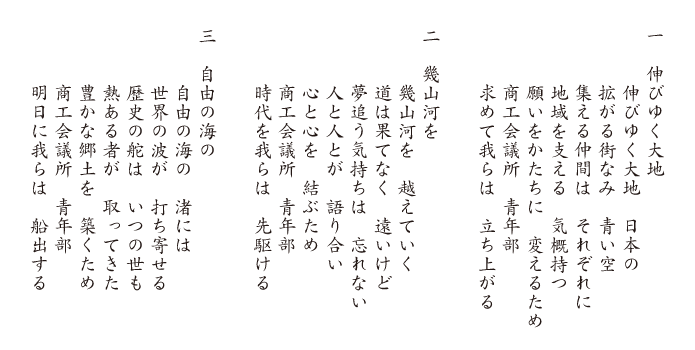 一　伸びゆく大地
伸びゆく大地　日本の
拡がる街なみ　青い空
集える仲間は　それぞれに
地域を支える　気概持つ
願いをかたちに　変えるため
商工会議所　青年部
求めて我らは　立ち上がる
二　幾山河を
幾山河を　越えていく
道は果てなく　遠いけど
夢追う気持ちは　忘れない
人と人とが　語り合い
心と心を　結ぶため
商工会議所　青年部
時代を我らは　先駆ける
三　自由の海の
自由の海の　渚には
世界の波が　打ち寄せる
歴史の舵は　いつの世も
熱ある者が　取ってきた
豊かな郷土を　築くため
商工会議所　青年部
明日に我らは　船出する